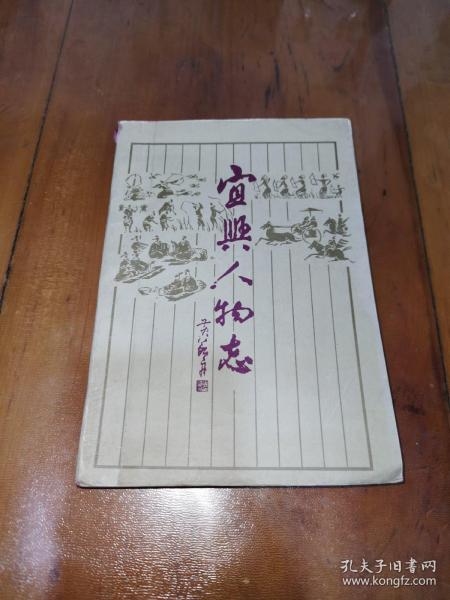 宜興人物志
孔夫子旧书网
www.kongfz.com